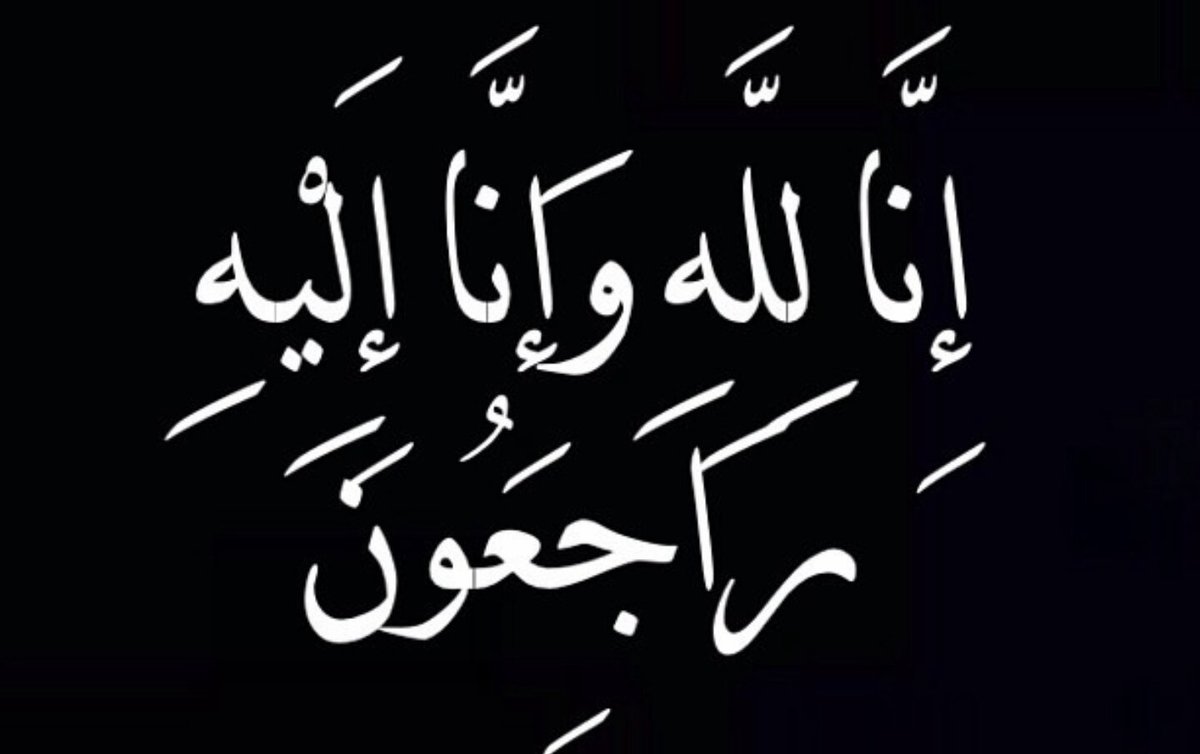 إِنَّا لِلَّهِ وَإِنَّا إِلَيْهِ
رَاجَِعُونََ